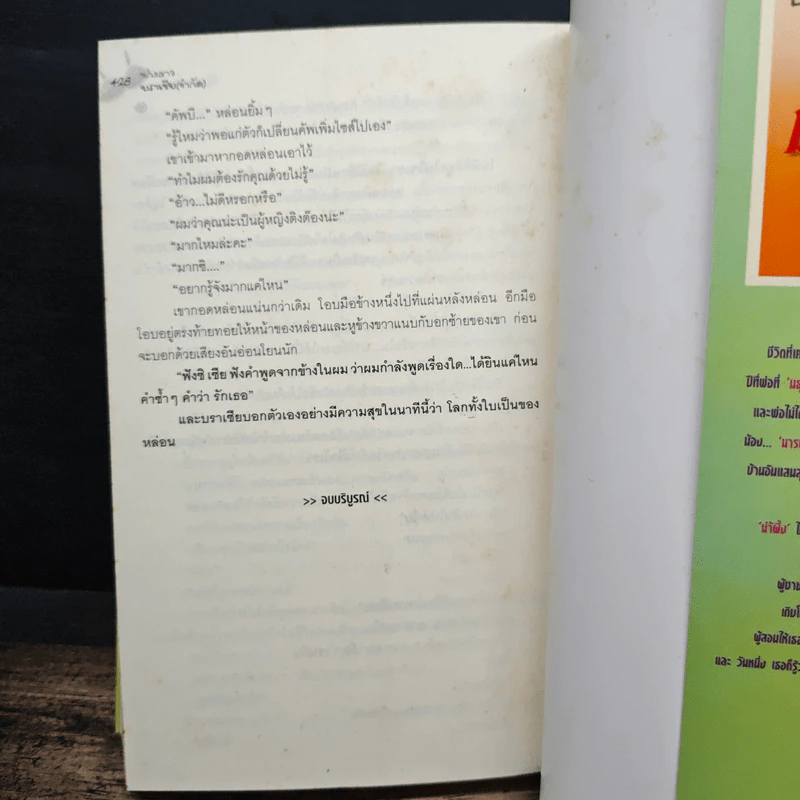 428
บราเซีย(จำกัด)
“คัพบี...” หล่อนยิ้มๆ
“รู้ไหมว่าพอแก่ตัวก็เปลี่ยนคัพเพิ่มไซส์ไปเอง”
เขาเข้ามาหากอดหล่อนเอาไว้
“ทำไมผมต้องรักคุณด้วยไม่รู้”
“อ้าว...ไม่ดีหรอกหรือ”
“ผมว่าคุณน่ะเป็นผู้หญิงติงต๊องนะ”
“มากไหมล่ะคะ”
“มากซิ....”
“อยากรู้จังมากแค่ไหน”
เขากอดหล่อนแน่นกว่าเดิม โอบมือข้างหนึ่งไปที่แผ่นหลังหล่อน อีกมือ
โอบอยู่ตรงท้ายทอยให้หน้าของหล่อนและหูข้างขวาแนบกับอกซ้ายของเขา ก่อน
จะบอกด้วยเสียงอันอ่อนโยนนัก
“ฟังซิ เซีย ฟังคำพูดจากข้างในผม ว่าผมกำลังพูดเรื่องใด...ได้ยินแค่ไหน
คำซ้ำๆ คำว่า รักเธอ”
และบราเซียบอกตัวเองอย่างมีความสุขในนาทีนี้ว่า โลกทั้งใบเป็นของ
หล่อน
>> จบบริบูรณ์ <<
ชีวิตที่เค
ปีที่พ่อที่
และพ่อไม่ได้
น้อง...
บ้านอันแสนสุ
'น้ำผึ้ง' ไ
เติบโ
ผู้สอนให้เธอ
และ วันหนึ่ง เธอก็รู้ว